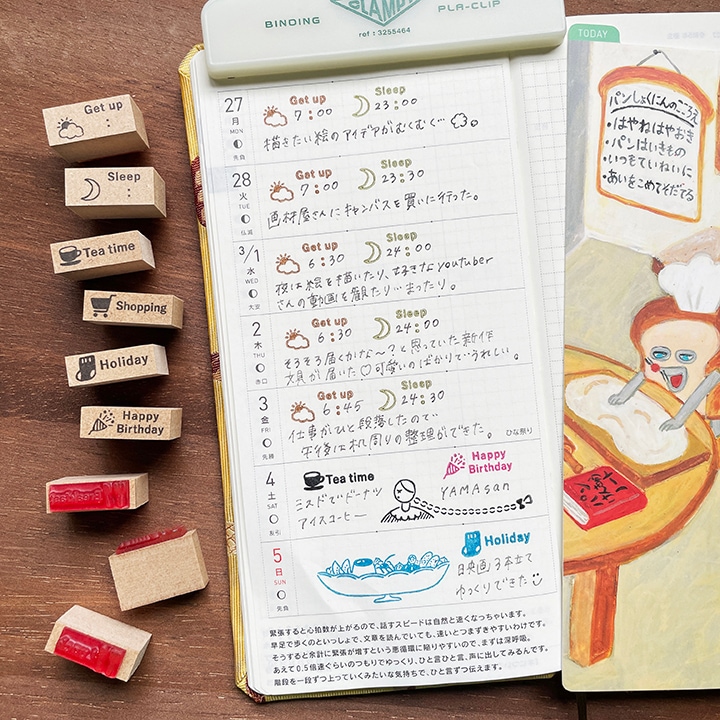 BINDING
CLAMPY
PLA-CLIP
ref : 3255464
Get up
:
Sleep
:
Tea time
Shopping
Holiday
Happy
Birthday
27
月
MON
先負
Get up
7:00
Sleep
23:00
描きたい絵のアイデアがむくむく…
28
火
TUE
仏滅
Get up
7:00
Sleep
23:30
画材屋さんにキャンバスを買いに行った。
3/1
水
WED
大安
Get up
6:30
Sleep
24:00
夜は絵を描いたり、好きなyoutuber
さんの動画を観たり…まったり。
2
木
THU
赤口
Get up
6:30
Sleep
24:00
そろそろ届くかな〜?と思っていた新作
文具が届いた♡可愛いのばかりで…うれしい。
3
金
FRI
先勝
Get up
6:45
Sleep
24:30
仕事がひと段落したので…
午後は机周りの整理ができた。
ひな祭り
4
土
SAT
友引
Tea time
ミスドでドーナツ
アイスコーヒー
Happy
Birthday
YAMAsan
5
日
SUN
先負
Holiday
日映画3本立て
ゆっくりできた
緊張すると心拍数が上がるので、話すスピードは自然と速くなっちゃいます。
早足で歩くのといっしょで、文章を読んでいても、速いとつまずきやすいわけです。
そうすると余計に緊張が増すという悪循環に陥りやすいので、まずは深呼吸。
あえて0.5倍速ぐらいのつもりでゆっくり、ひと言ひと言、声に出してみるんです。
階段を一段ずつ上っていくみたいな気持ちで、ひと言ずつ伝えます。
TODAY
パンしょくにんのこころえ
・はやねはやおき
・パンはいきもの
・いつもていねいに
・あいをこめてそだてる